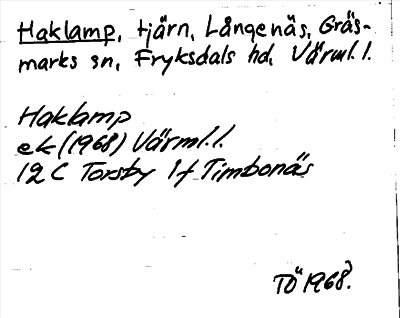 Haklamp, tjärn, Långenäs, Gräs-
marks sn, Fryksdals hd, Värml. l.
Haklamp
ek (1968) Värml. l.
12 C Torsby 1f Timbonäs
TÖ 1968.